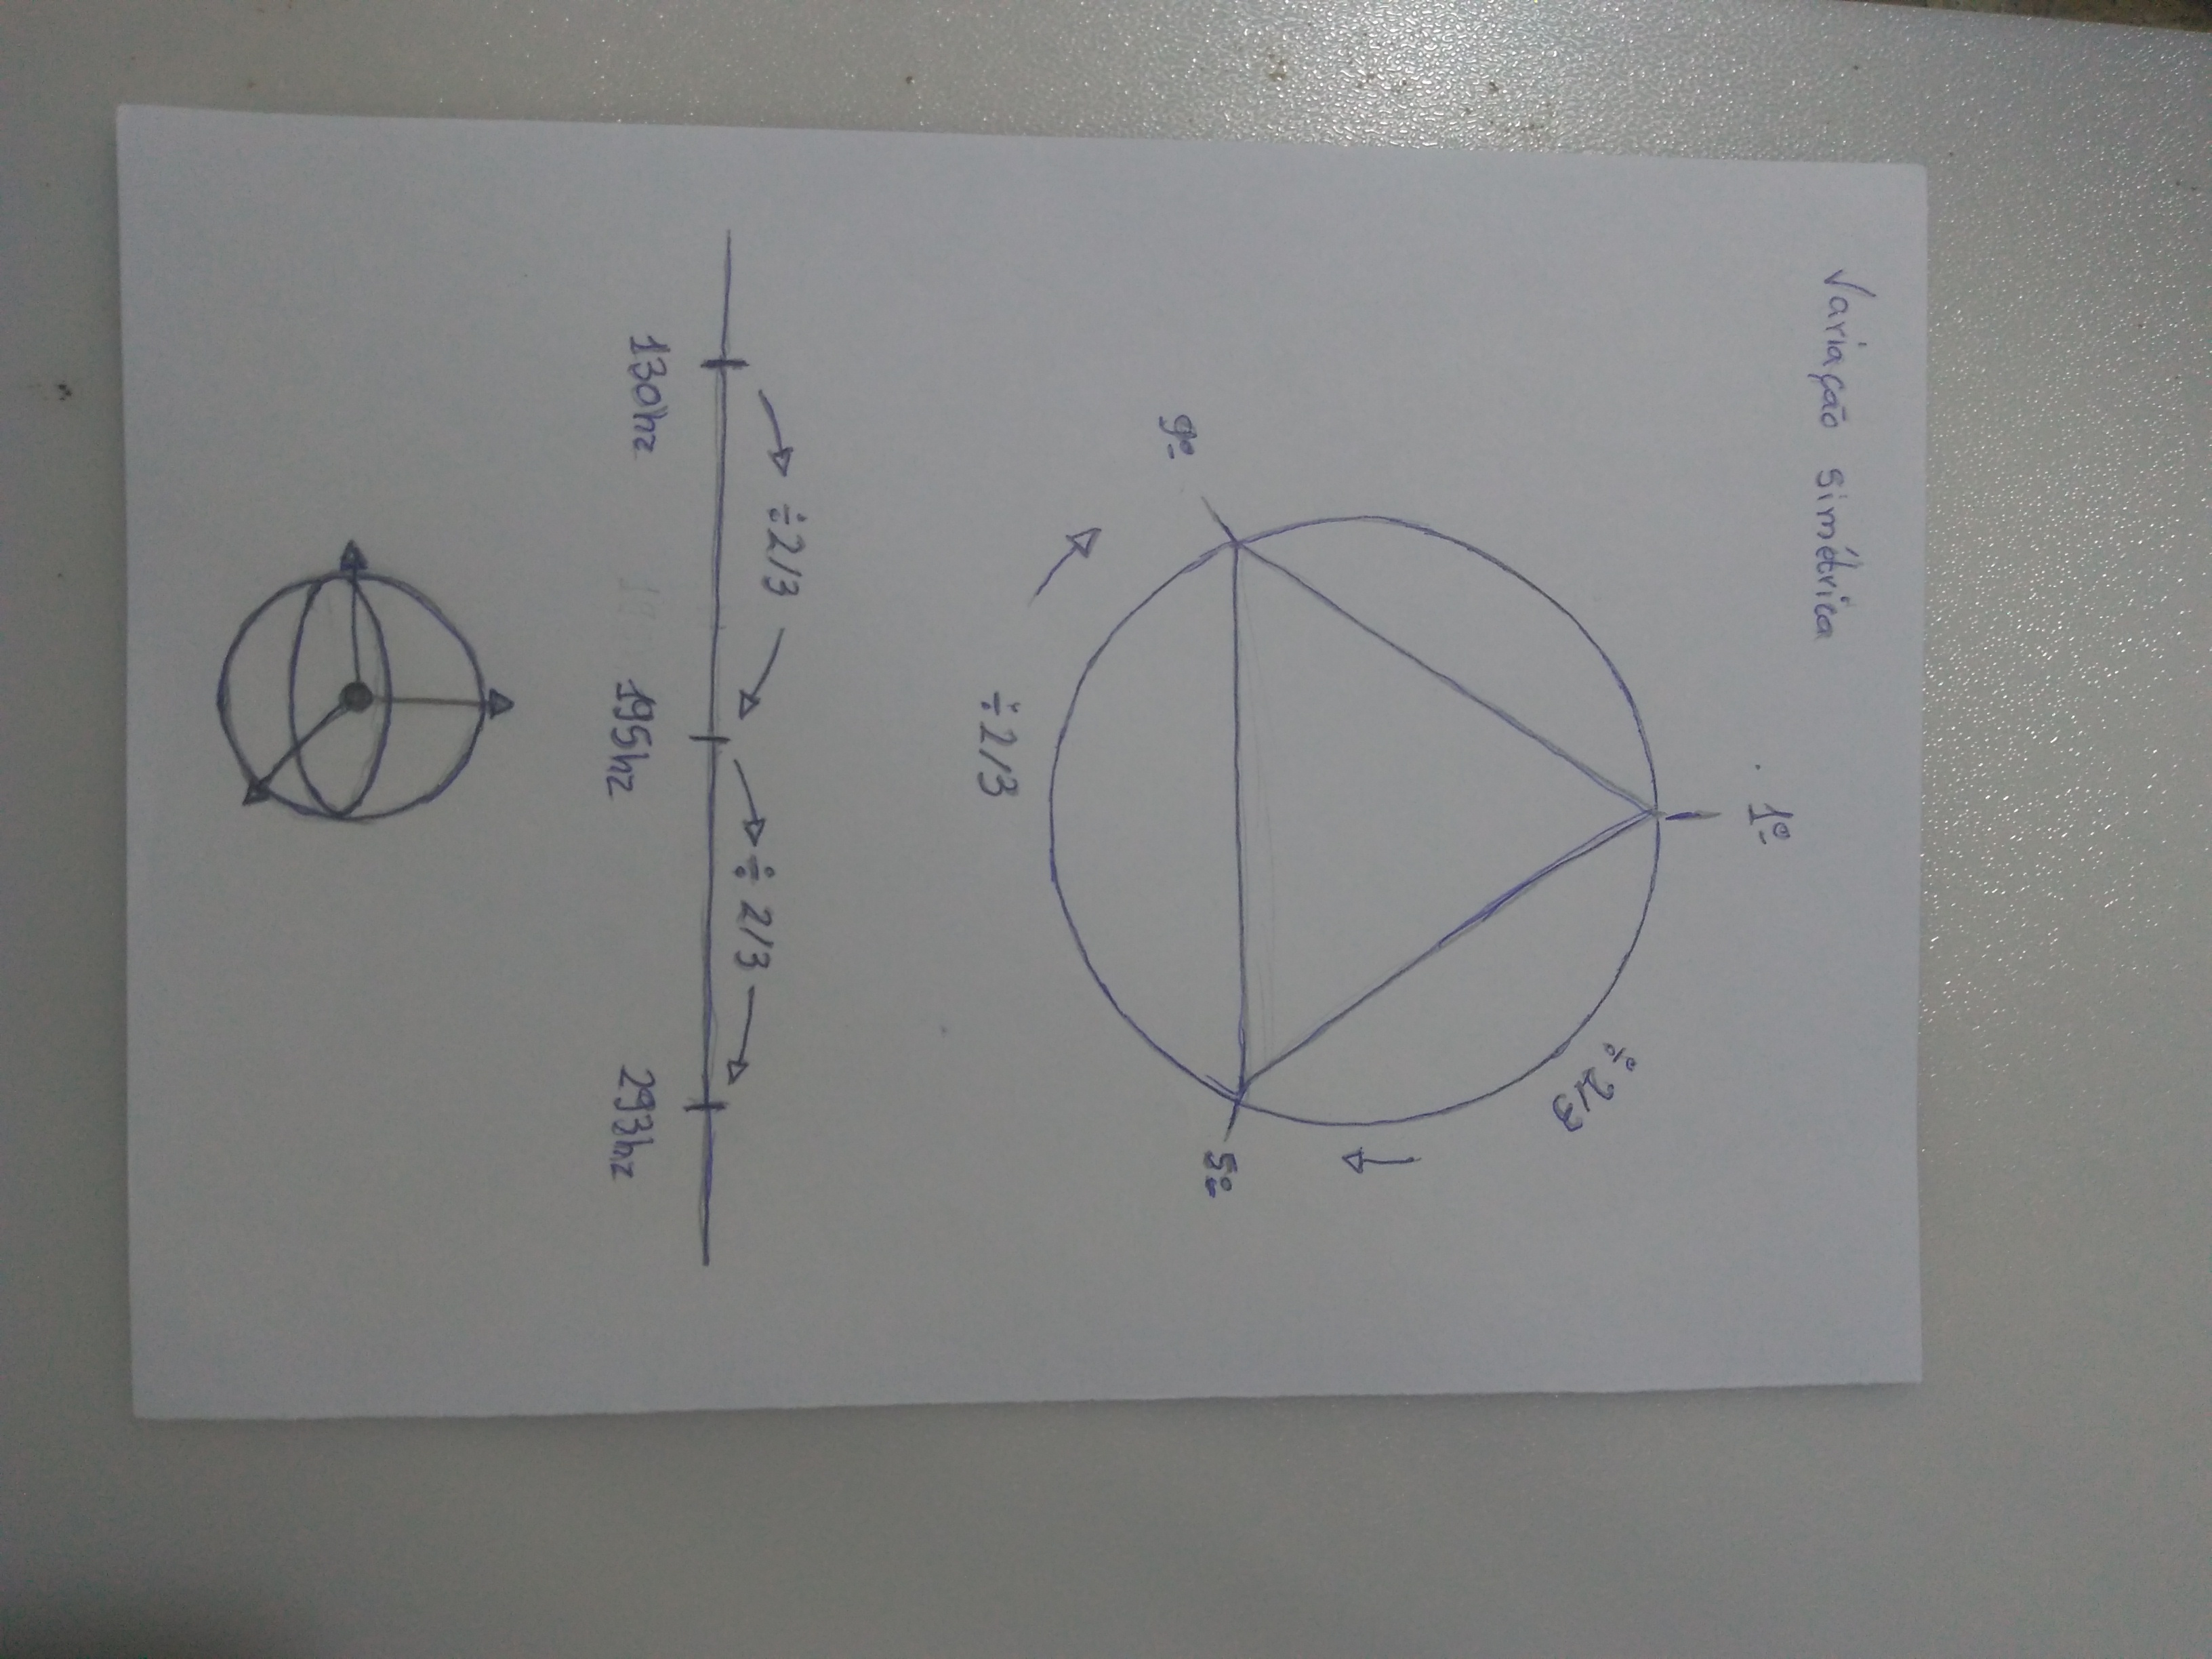 Variação simétrica
1º
÷2/3
9º
5º
÷2/3
÷2/3
÷2/3
130hz
195hz
293hz